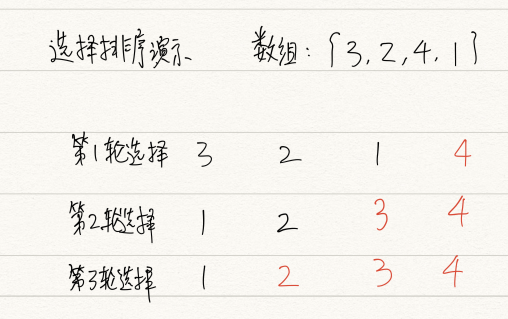 选择排序演示 数组:{3,2,4,1}
第1轮选择 3 2 1 4
第2轮选择 1 2 3 4
第3轮选择 1 2 3 4